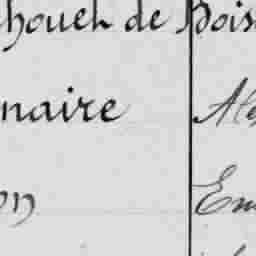 chouet de Bois
naire Ale
on Em